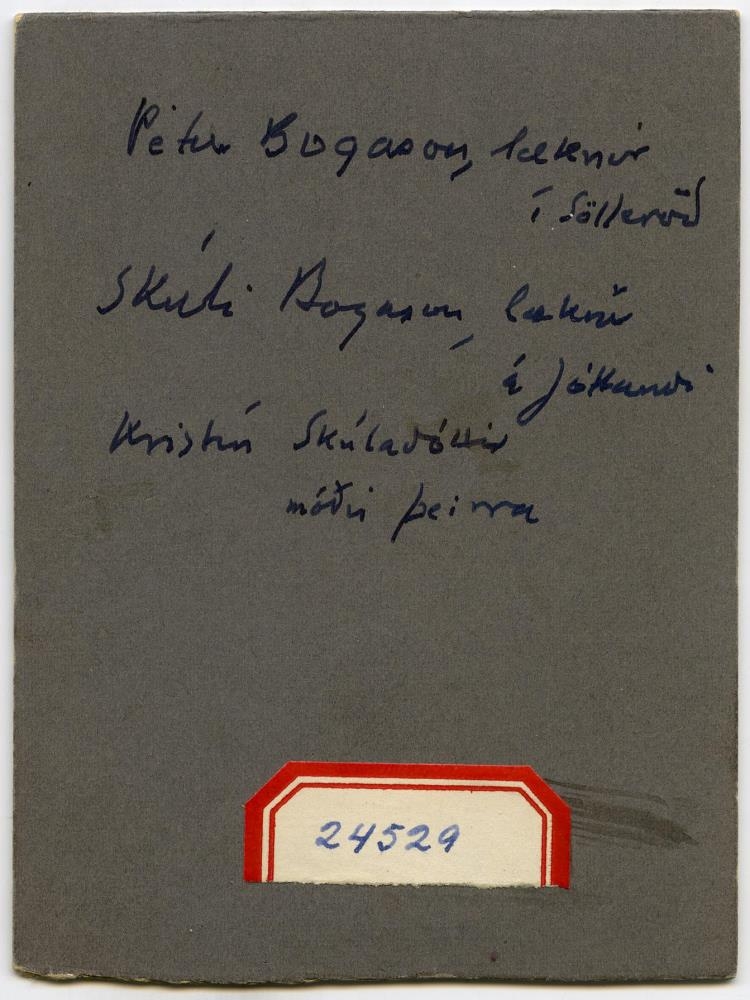 Pétur Bogason, læknir
í Sölleröd
Skúli Bogason, læknir
á Jótlandi
Kristín Skúladóttir
móðir þeirra
24529